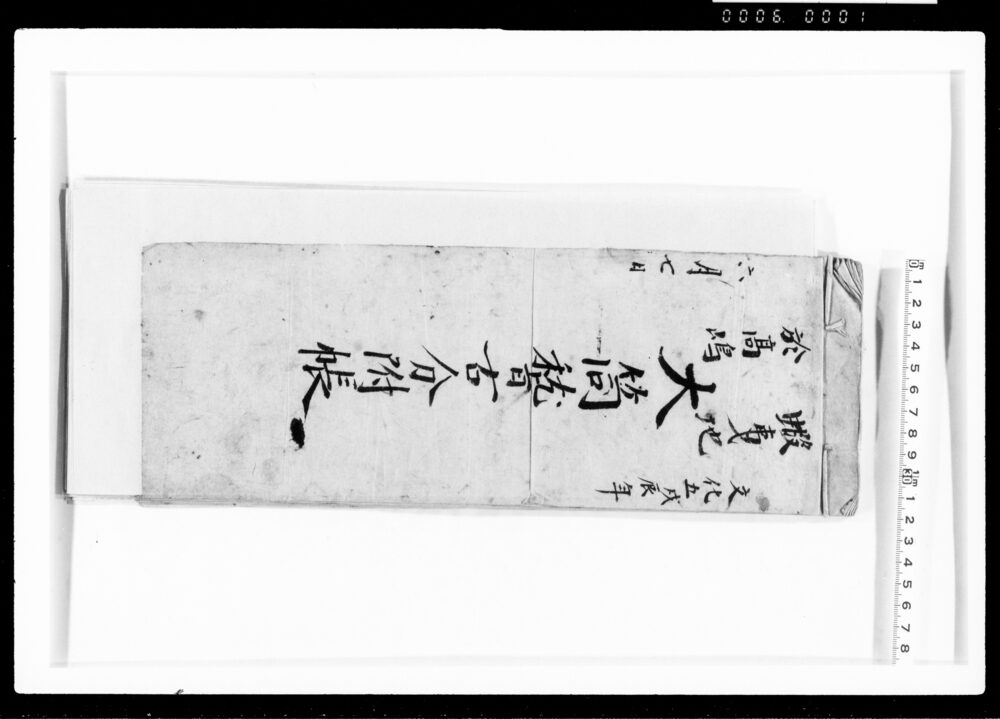 0006. 0001
文化五戊辰年
蝦夷地
於高嶋
大筒稽古 附帳
六月七日
0 1 2 3 4 5 6 7 8 9 10 1 2 3 4 5 6 7 8